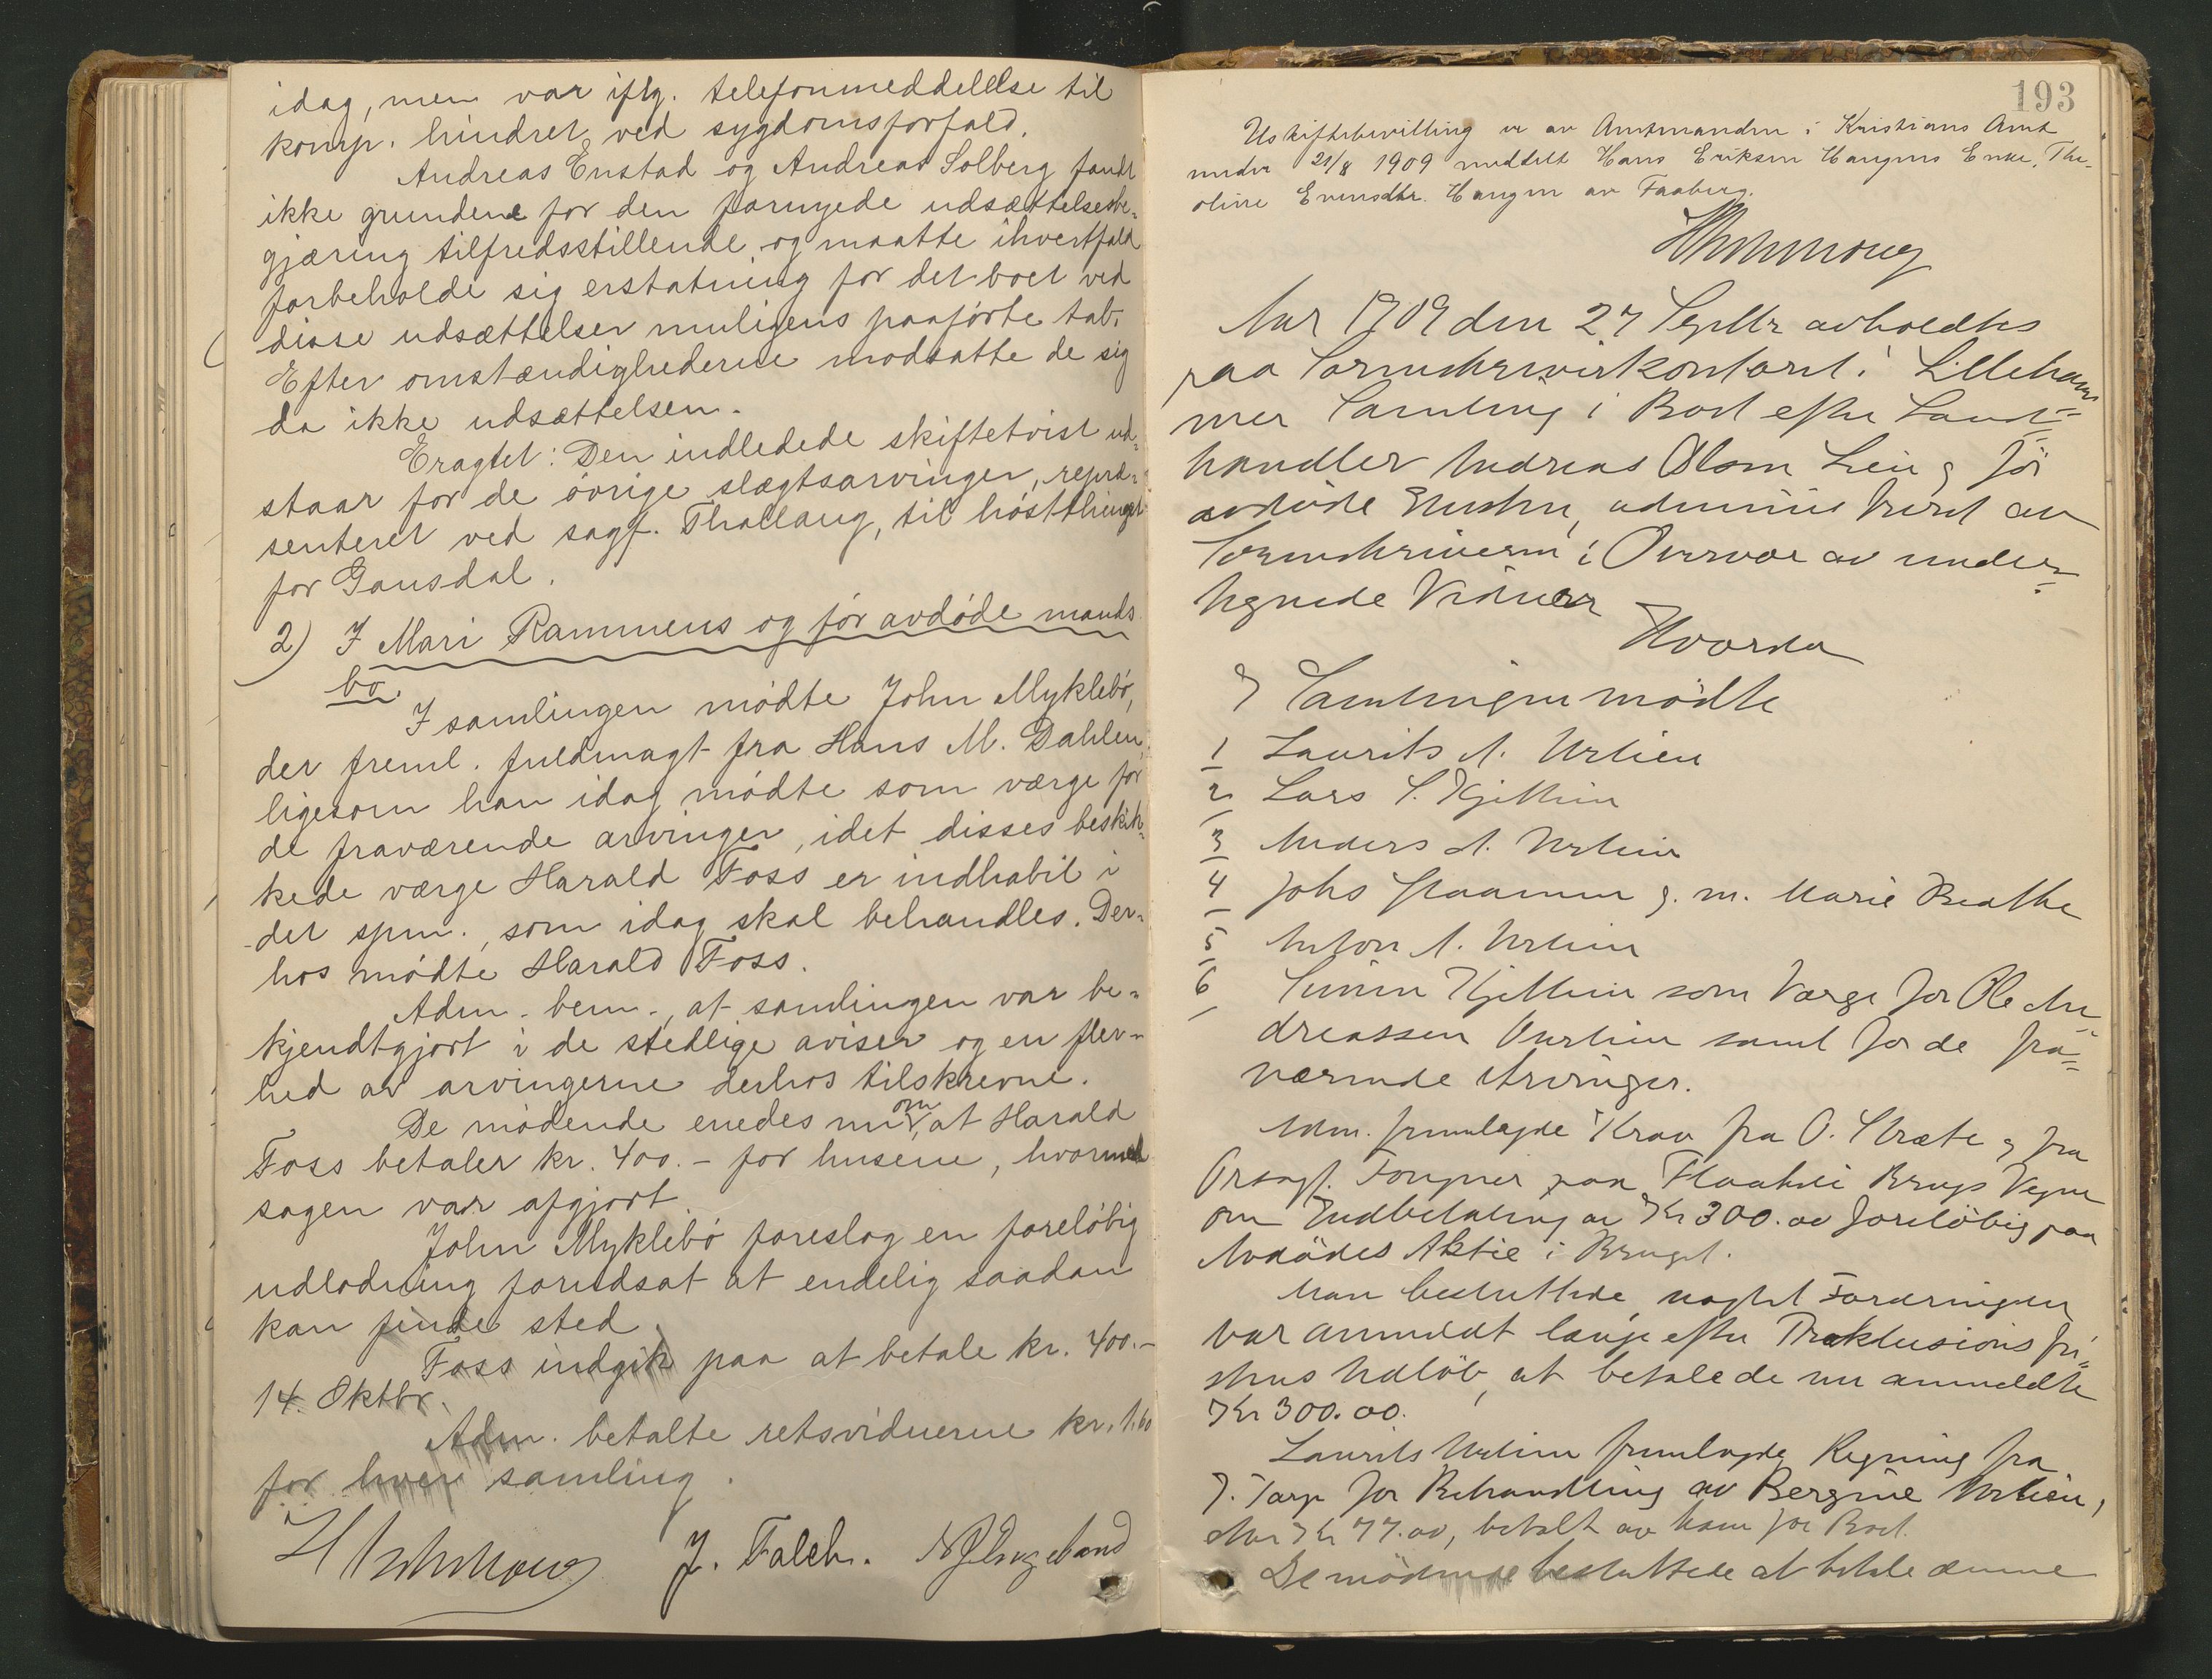 idag, men var iflg. telefonmeddelelse til
komp. hindret ved sygdomsforfald.
Andreas Enstad og Andreas Solberg fandt
ikke grundene for den fornyede udsættelsesbe-
gjæring tilfredsstillende og maatte ihvertfald
forbeholde sig erstatning for det boet ved
disse udsættelser muligens paaførte tab.
Efter omstændighederne modsatte de sig
da ikke udsættelsen.
Eragtet: Den indledede skiftetvist ud-
staar for de øvrige slægtsarvinger, repræ-
senteret ved sagf. Thallaug, til høstthinget
for Gausdal.
2) I Mari Rammens og før avdøde mands
bo.
I samlingen mødte John Myklebø,
der freml. fuldmagt fra Hans M. Dahlen,
ligesom han idag mødte som værge for
de fraværende arvinger, idet disses beskik-
kede værge Harald Foss er indhabil i
det spm., som idag skal behandles. Der-
hos mødte Harald Foss.
Adm. bem., at samlingen var be-
kjendtgjort i de stedlige aviser og en fler-
hed av arvingerne derhos tilskrevne.
De mødende enedes nu om, at Harald
Foss betaler kr. 400.- for husene, hvormed
sagen var afgjort.
John Myklebø foreslog en foreløbig
udlodning forudsat at endelig saadan
kan finde sted.
Foss indgik paa at betale kr. 400.-
14. Oktbr.
Adm. betalte retsvidnerne kr. 1.60
for hver samling.
J. Falch.
193
Uskiftebevilling er av Amtmanden i Kristians Amt
under 21/8 1909 meddelt Hans Eriksen Haugens Enke, The-
oline Evensdtr. Haugen av Faaberg.
Aar 1909 den 27 Septbr avholdtes
paa Sorenskriverkontoret i Lilleham-
mer Samling i Boet efter Land-
handler Andreas Olsen Lien og før
avdøde Hustru, administreret av
Sorenskriveren i Overvær av under-
tegnede Vidner
Hvorda
I Samlingen mødte
1 Laurits A. Urlien
2 Lars S. Kjellien
3 Anders A. Urlien
4 Johs g. m. Marie Beathe
5 Anton A. Urlien
6 Simen Kjellien som Værge for Ole An-
dreassen Urlien samt for de fra-
værende Arvinger.
Adm. fremlagde Krav fra O. Stræte og fra
Orsagf. Fougner paa Brugs Vegne
om Indbetaling av Kr 300.00 foreløbig paa
Avdødes Aktie i Bruget.
Man besluttede, uagtet Fordringen
var anmeldt længe efter Præklusionsfri-
stens Udløb, at betale de nu anmeldte
Kr 300.00.
Laurits Urlien fremlagde Regning fra
J. Tarp for Behandling av Bergine Urlien,
stor Kr 77.00, betalt av ham for Boet.
De mødende besluttede at betale denne